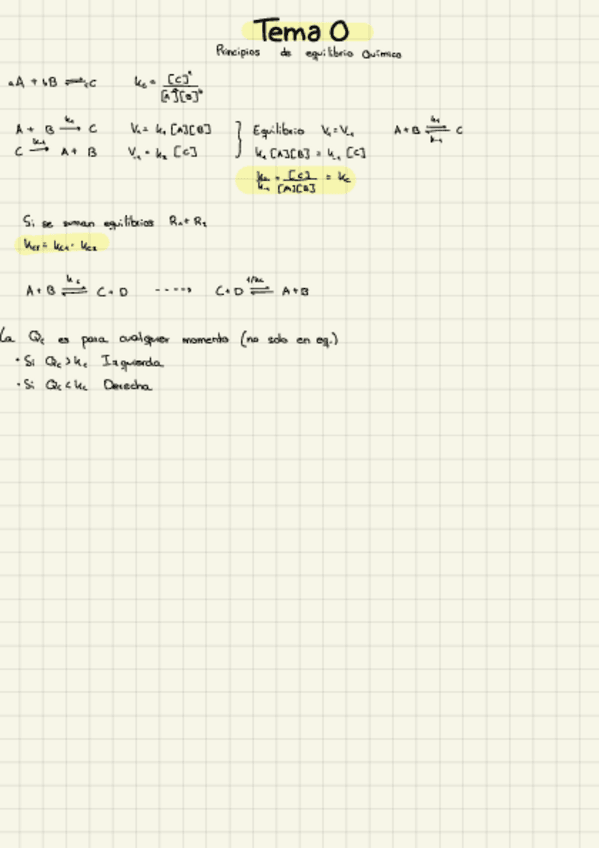 Tema 0
Principios de equilibrio Químico
aA + bB ⇌ cC    kc = [C]^c / [A]^a[B]^b
A + B →(k1) C    V1 = k1 [A][B]    } Equilibrio V1 = V-1    A+B ⇌(k1/k-1) C
C →(k-1) A + B    V-1 = k2 [C]    k1 [A][B] = k-1 [C]
k1/k-1 = [C]/[A][B] = kc
Si se suman equilibrios R1 + R2
kcr = kc1 · kc2
A + B ⇌(kc) C + D    ----→    C + D ⇌(1/kc) A + B
La Qc es para cualquier momento (no solo en eq.)
· Si Qc > kc Izquierda
· Si Qc < kc Derecha